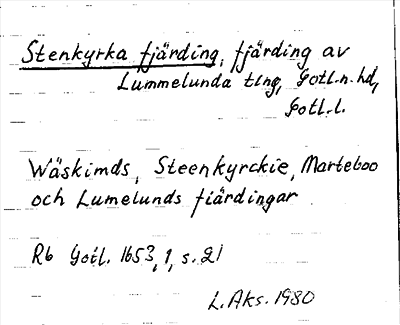 Stenkyrka fjärding, fjärding av
Lummelunda tlng, Gotl.n.hd,
Gotl.l.
Wäskimds, Steenkyrckie, Marteboo
och Lumelunds fiärdingar
Rb Gotl. 1653, 1, s. 21
L. Aks. 1980